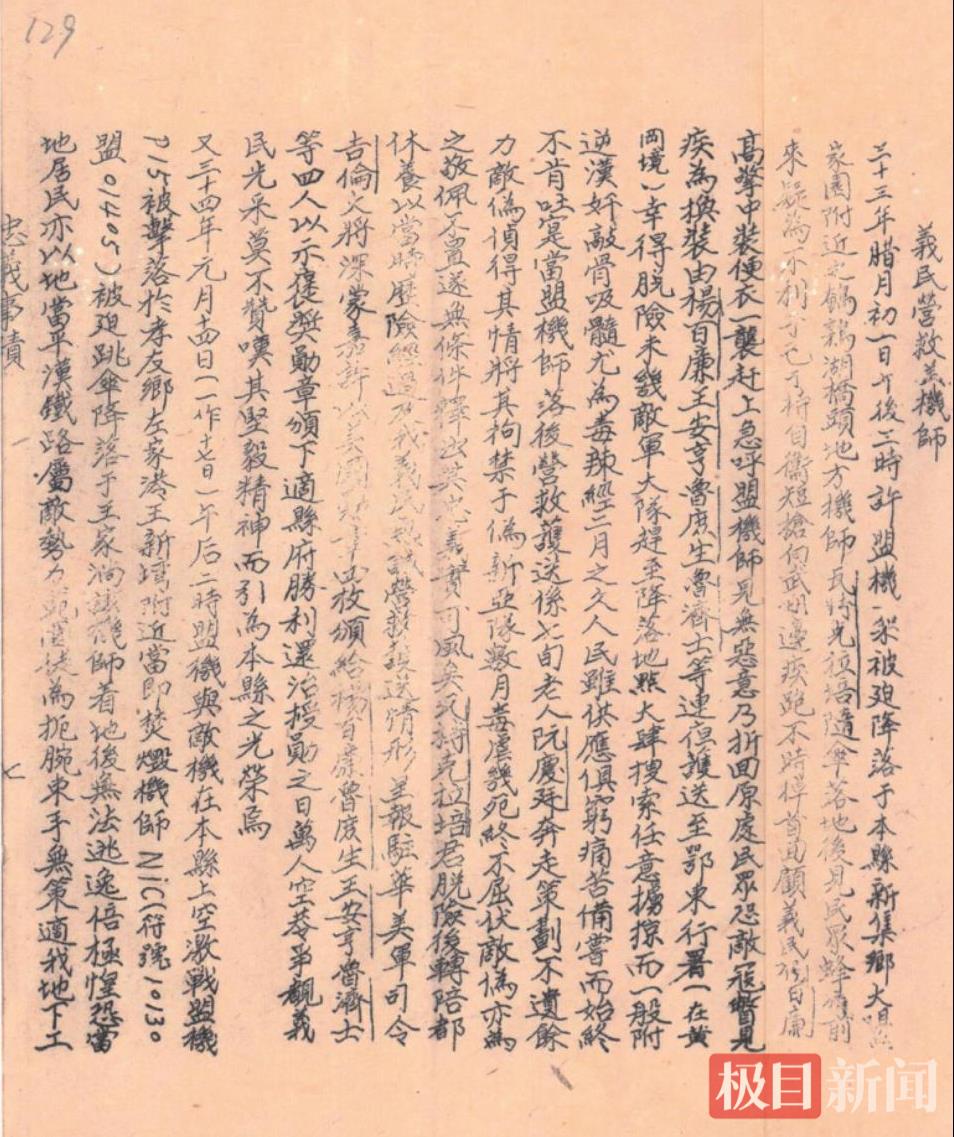 129
義民營救美機師
三十三年腊月初一日午後二時許盟機一架被迫降落于本縣新集鄉大咀
家園附近之鵓鸪湖橋頭地方機師克特克拉培隨傘落地後見民眾蜂湧前
來疑為不利于己乃持自衛短槍向武湖邊疾跑不時掉首回顧義民楊百廉
高擎中裝便衣一襲赶上急呼盟機師見無惡意乃折回原處民眾恐敵寇瞥見
疾為換裝由楊百廉王安亨魯庶生魯濟士等連但護送至鄂東行署(在黄
岡境)幸得脱險未幾敵軍大隊趕至降落地點大肆搜索任意擄掠而一般附
逆漢奸敲骨吸髓尤為毒辣經二月之久人民雖供應俱窮痛苦備嘗而始終
不肯吐寔當盟機師落後營救護送係七旬老人阮慶廷奔走策劃不遺餘
力敵偽偵得其情將其拘禁于偽新亞隊數月毒虐幾死終不屈伏敵偽亦為
之敬佩不置遂無條件釋出其忠義寔可風矣克特克拉培君脱險後轉陪都
休養以當時歷險經過及我義民熱誠營救護送情形呈報駐華美軍司令
吉倫文將深蒙嘉許以美國勳章四枚頒給楊百廉魯庶生王安亨魯濟士
等四人以示褒奬勛章頒下適縣府勝利還治授勛之日萬人空巷爭觀義
民光采莫不贊嘆其堅毅精神而引為本縣之光榮焉
又三十四年元月十四日(一作十七日)午后二時盟機與敵機在本縣上空激戰盟機
P15被擊落於孝友鄉左家塆王新塆附近當即焚燬機師NIC(符號10130
盟014405)被迫跳傘降落于王家淌該機師着地後無法逃逸倍極惶恐當
地居民亦以地當平漢鐵路屬敵勢力範圍徒為扼腕束手無策適我地下工
忠義事蹟
七
极目新闻